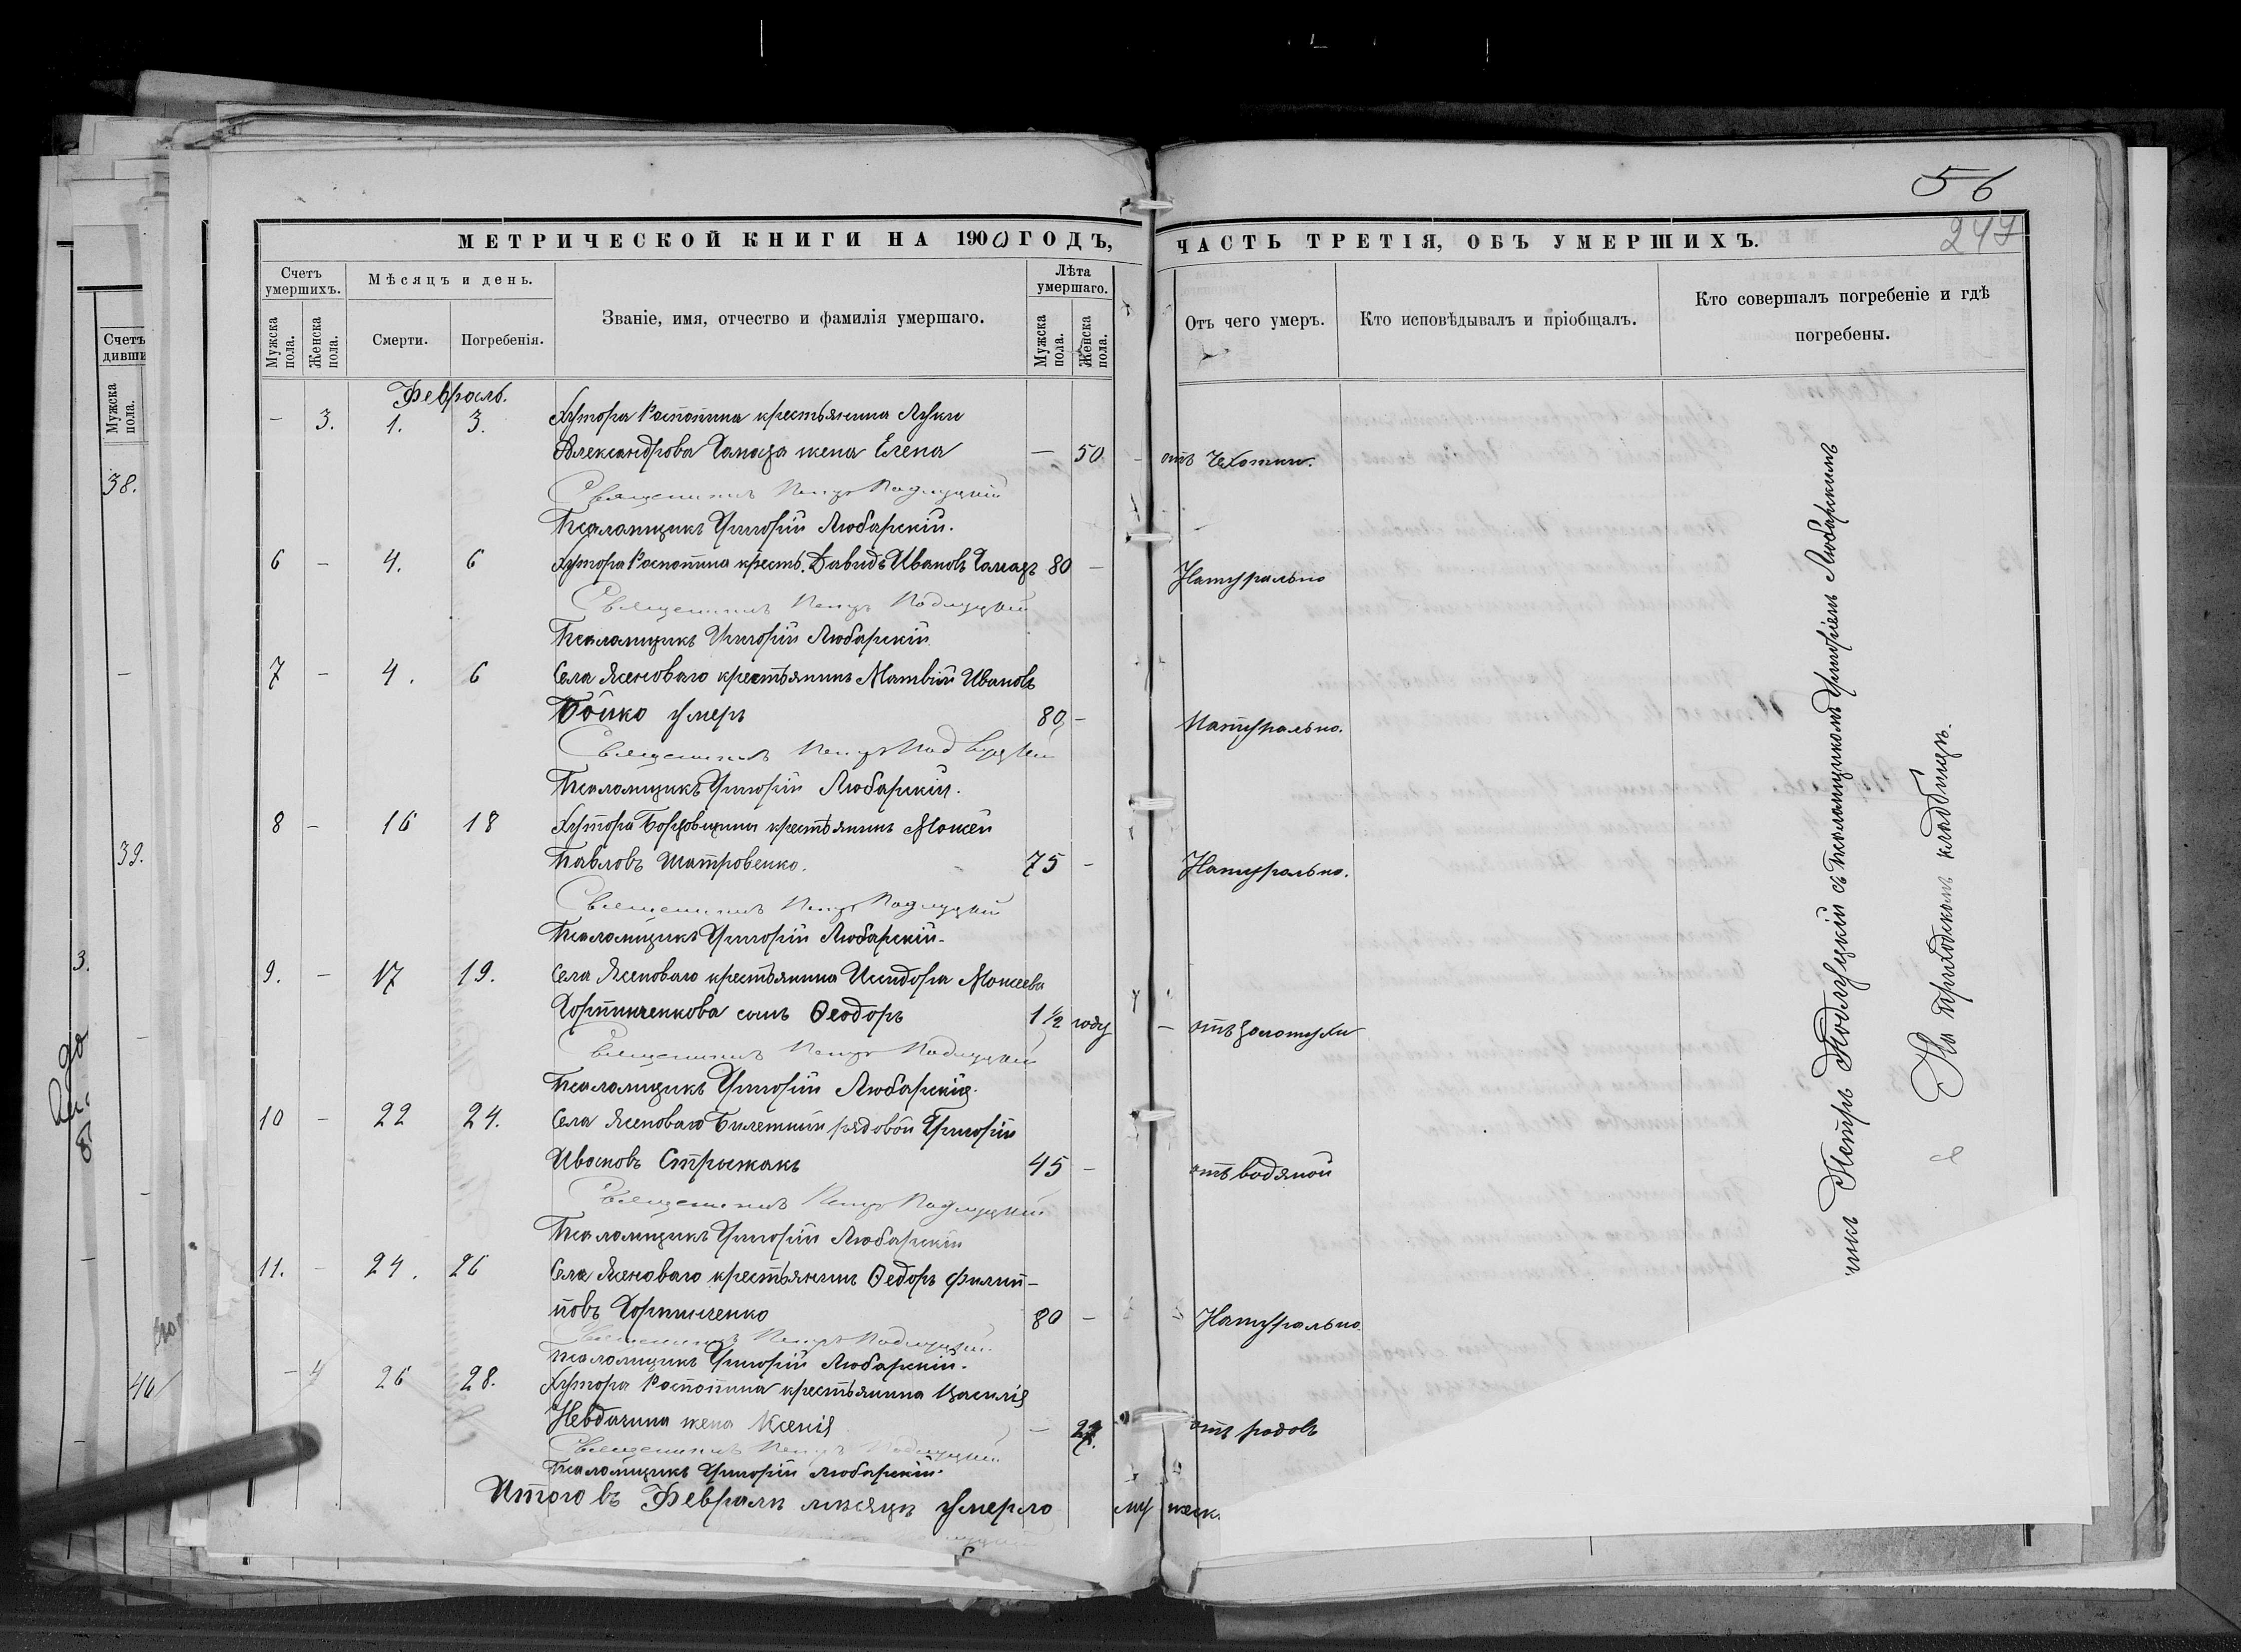 56
247
МЕТРИЧЕСКОЙ КНИГИ НА 1900 ГОДЪ,
ЧАСТЬ ТРЕТІЯ, ОБЪ УМЕРШИХЪ.
Счетъ умершихъ.
Мѣсяцъ и день.
Званіе, имя, отчество и фамилія умершаго.
Лѣта умершаго.
Мужска пола.
Женска пола.
Смерти.
Погребенія.
Мужска пола.
Женска пола.
Отъ чего умеръ.
Кто исповѣдывалъ и пріобщалъ.
Кто совершалъ погребеніе и гдѣ погребены.
Февраль.
– 3. 1. 3. Хутора Распопина крестьянина Луки
Александрова жена Елена — 50 отъ Чахотки.
Священникъ Петръ Подлуцкій
Псаломщикъ Григорій Любарскій.
6 – 4. 6 Хутора Распопина крестъ. Давидъ Ивановъ 80 – Натурально
Священникъ Петръ Подлуцкій
Псаломщикъ Григорій Любарскій
7 – 4. 6 Села Ясеноваго крестьянинъ Матвій Ивановъ
Бойко умеръ 80 – Натурально.
Священникъ Петръ Подлуцкій
Псаломщикъ Григорій Любарскій.
8 – 16 18 Хутора крестьянинъ Моисей
Павловъ Шатровенко. 75 – Натурально.
Священникъ Петръ Подлуцкій
Псаломщикъ Григорій Любарскій.
9. – 17 19. Села Ясеноваго крестьянина Исидора Моисеева
сынъ Ѳеодоръ 1 1/2 году – отъ золотухи
Священникъ Петръ Подлуцкій
Псаломщикъ Григорій Любарскій.
10 – 22 24. Села Ясеноваго Билетный рядовой Григорій
Ивановъ 45 – отъ водяной
Священникъ Петръ Подлуцкій
Псаломщикъ Григорій Любарскій
11. – 24. 26 Села Ясеноваго крестьянинъ Ѳедоръ Филип-
повъ 80 – Натурально.
Священникъ Петръ Подлуцкій
Псаломщикъ Григорій Любарскій.
– 4 26 28. Хутора Распопина крестьянина Василія
жена Ксенія – отъ родовъ
Священникъ Петръ Подлуцкій
Псаломщикъ Григорій Любарскій.
Итого въ Февралѣ мѣсяцѣ умерло
Петръ Подлуцкій съ Псаломщикомъ Григоріемъ Любарскимъ
На приходскомъ кладбищѣ.
Счетъ
Мужска пола.
38.
39.
40
3.